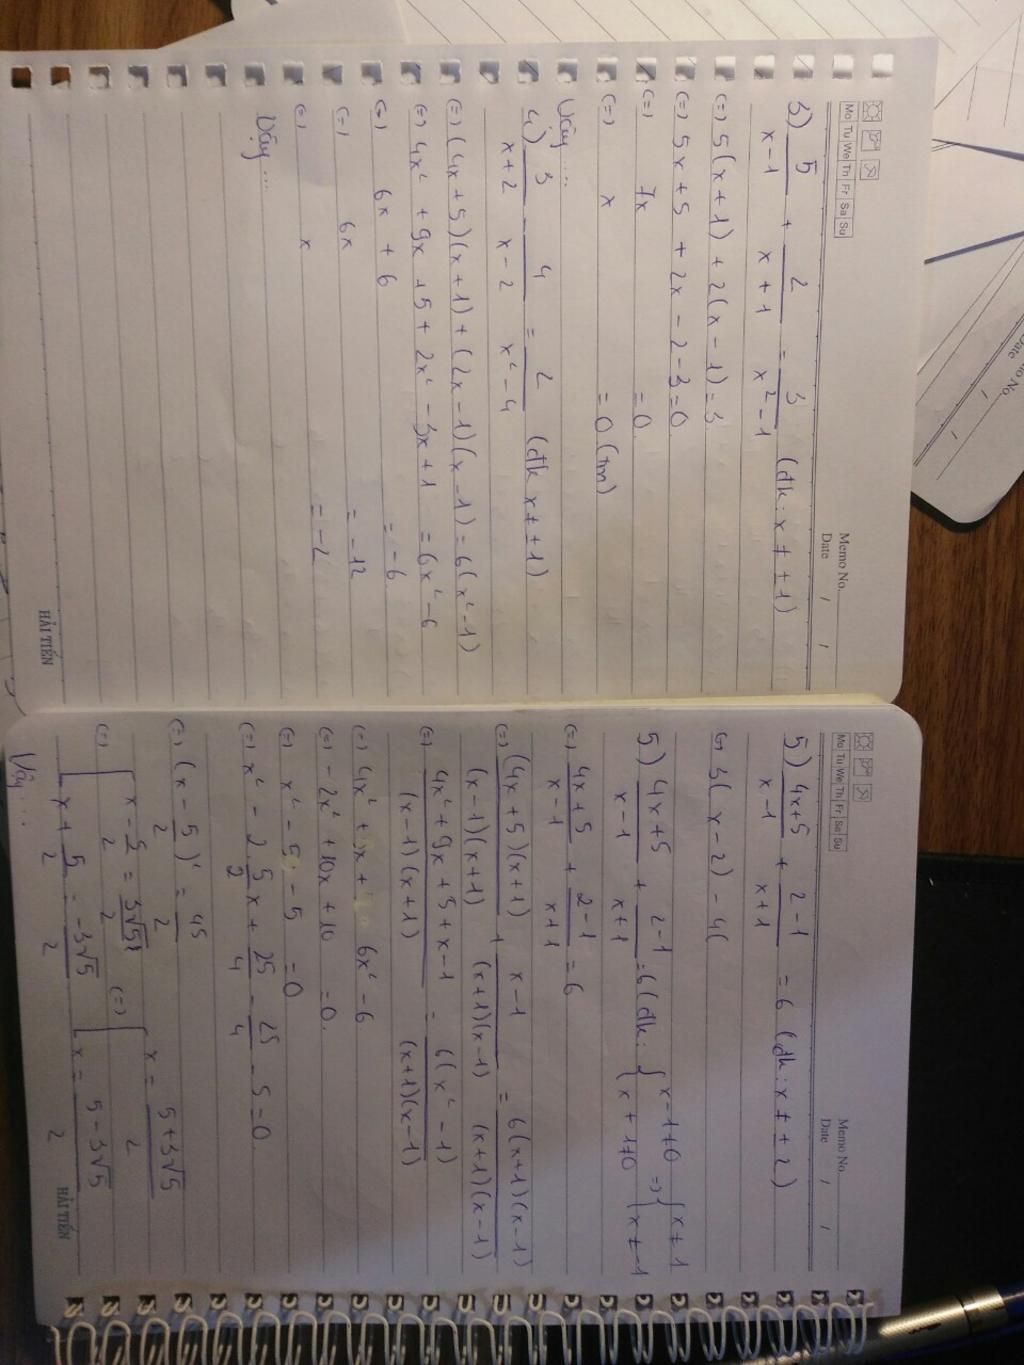 Mo Tu We Th Fr Sa Su
Memo No.
Date / /
3) 5/(x-1) + 2/(x+1) = 3/(x²-1) (đk: x ≠ ±1)
(=) 5(x+1) + 2(x-1) = 3
(=) 5x+5 + 2x-2-3=0
(=) 7x =0
(=) x = 0 (tm)
Vậy...
4) 3/(x+2) - 4/(x-2) = 2/(x²-4) (đk x ≠ ±1)
(=) (4x+5)(x+1)+(2x-1)(x-1)=6(x²-1)
(=) 4x²+9x+5+2x²-3x+1 =6x²-6
(=) 6x + 6 = -6
(=) 6x = -12
(=) x = -2
Vậy...
HẢI TIẾN
Mo Tu We Th Fr Sa Su
Memo No.
Date / /
5) (4x+5)/(x-1) + (2-1)/(x+1) = 6 (đk: x ≠ ±2)
(=) 3(x-2) - 4(
5) (4x+5)/(x-1) + (2-1)/(x+1) = 6 (đk: { x-1≠0 x+1≠0 => { x≠1 x≠-1
(=) (4x+5)/(x-1) + (2-1)/(x+1) = 6
(=) (4x+5)(x+1)/(x-1)(x+1) + (x-1)/(x+1)(x-1) = 6(x+1)(x-1)/(x+1)(x-1)
(=) (4x²+9x+5+x-1)/(x-1)(x+1) = 6(x²-1)/(x+1)(x-1)
(=) 4x² + 6x²-6
(=) -2x²+10x+10 =0
(=) x²-5x-5 =0
(=) x² - 2.5/2x + 25/4 - 25/4 - 5 = 0
(=) (x - 5/2)² = 45/2
(=) [ x - 5/2 = 3√5/2 (=) [ x = (5+3√5)/2
x + 5/2 = -3√5/2 x = (5-3√5)/2
Vậy...
HẢI TIẾN
Memo No.
Date / /